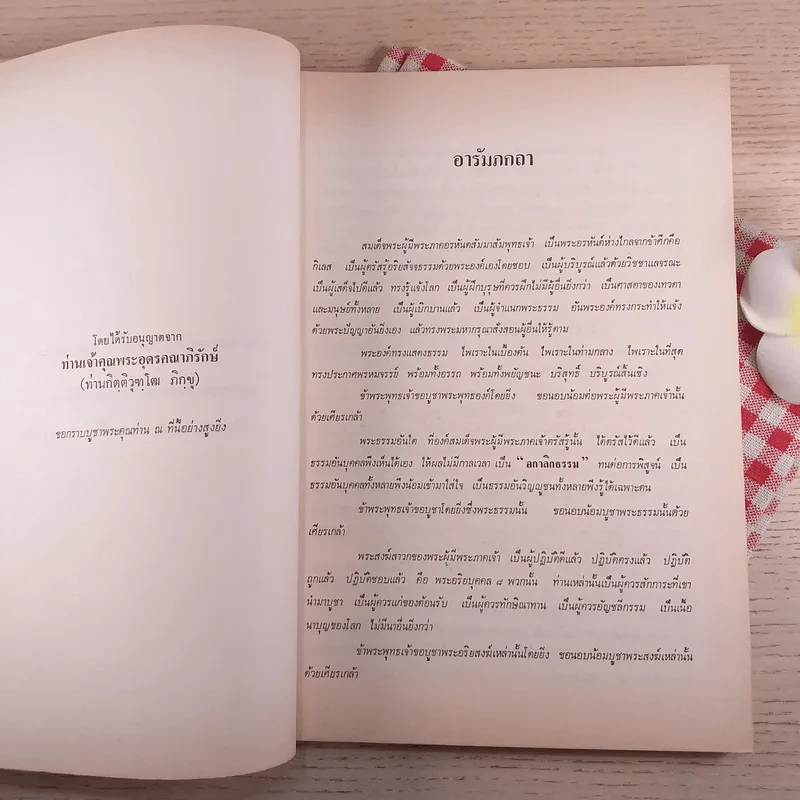 โดยได้รับอนุญาตจาก
ท่านเจ้าคุณพระอุดรคณาภิรักษ์
(ท่านกิตฺติวุฑฺโฒ ภิกฺขุ)
ขอกราบบูชาพระคุณท่าน ณ ที่นี้อย่างสูงยิ่ง
อารัมภกถา
สมเด็จพระผู้มีพระภาคอรหันตสัมมาสัมพุทธเจ้า เป็นพระอรหันต์ห่างไกลจากข้าศึกคือ
กิเลส เป็นผู้ตรัสรู้อริยสัจจธรรมด้วยพระองค์เองโดยชอบ เป็นผู้บริบูรณ์แล้วด้วยวิชชาแลจรณะ
เป็นผู้เสด็จไปดีแล้ว ทรงรู้แจ้งโลก เป็นผู้ฝึกบุรุษที่ควรฝึกไม่มีผู้อื่นยิ่งกว่า เป็นศาสดาของเทวดา
และมนุษย์ทั้งหลาย เป็นผู้เบิกบานแล้ว เป็นผู้จำแนกพระธรรม อันพระองค์ทรงกระทำให้แจ้ง
ด้วยพระปัญญาอันยิ่งเอง แล้วทรงพระมหากรุณาสั่งสอนผู้อื่นให้รู้ตาม
พระองค์ทรงแสดงธรรม ไพเราะในเบื้องต้น ไพเราะในท่ามกลาง ไพเราะในที่สุด
ทรงประกาศพรหมจรรย์ พร้อมทั้งอรรถ พร้อมทั้งพยัญชนะ บริสุทธิ์ บริบูรณ์สิ้นเชิง
ข้าพระพุทธเจ้าขอบูชาพระพุทธองค์โดยยิ่ง ขอนอบน้อมต่อพระผู้มีพระภาคเจ้านั้น
ด้วยเศียรเกล้า
พระธรรมอันใด ที่องค์สมเด็จพระผู้มีพระภาคเจ้าตรัสรู้นั้น ได้ตรัสไว้ดีแล้ว เป็น
ธรรมอันบุคคลพึงเห็นได้เอง ให้ผลไม่มีกาลเวลา เป็น “อกาลิกธรรม” ทนต่อการพิสูจน์ เป็น
ธรรมอันบุคคลทั้งหลายพึงน้อมเข้ามาใส่ใจ เป็นธรรมอันวิญญูชนทั้งหลายพึงรู้ได้เฉพาะตน
ข้าพระพุทธเจ้าขอบูชาโดยยิ่งซึ่งพระธรรมนั้น ขอนอบน้อมบูชาพระธรรมนั้นด้วย
เศียรเกล้า
พระสงฆ์สาวกของพระผู้มีพระภาคเจ้า เป็นผู้ปฏิบัติดีแล้ว ปฏิบัติตรงแล้ว ปฏิบัติ
ถูกแล้ว ปฏิบัติชอบแล้ว คือ พระอริยบุคคล ๘ พวกนั้น ท่านเหล่านั้นเป็นผู้ควรสักการะที่เขา
นำมาบูชา เป็นผู้ควรแก่ของต้อนรับ เป็นผู้ควรทักษิณาทาน เป็นผู้ควรอัญชลีกรรม เป็นเนื้อ
นาบุญของโลก ไม่มีนาอื่นยิ่งกว่า
ข้าพระพุทธเจ้าขอบูชาพระอริยสงฆ์เหล่านั้นโดยยิ่ง ขอนอบน้อมบูชาพระสงฆ์เหล่านั้น
ด้วยเศียรเกล้า